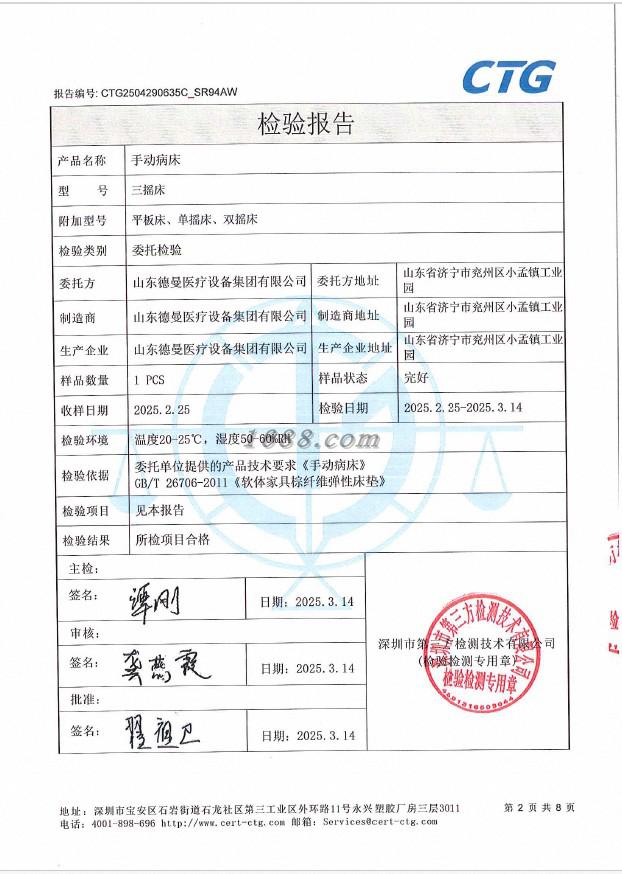 CTG
报告编号: CTG2504290635C_SR94AW
检验报告
产品名称 手动病床
型 号 三摇床
附加型号 平板床、单摇床、双摇床
检验类别 委托检验
委托方 山东德曼医疗设备集团有限公司 委托方地址 山东省济宁市兖州区小孟镇工业园
制造商 山东德曼医疗设备集团有限公司 制造商地址 山东省济宁市兖州区小孟镇工业园
生产企业 山东德曼医疗设备集团有限公司 生产企业地址 山东省济宁市兖州区小孟镇工业园
样品数量 1 PCS 样品状态 完好
收样日期 2025.2.25 检验日期 2025.2.25-2025.3.14
检验环境 温度20-25℃，湿度50-60%RH
1688.com
检验依据 委托单位提供的产品技术要求《手动病床》
GB/T 26706-2011《软体家具棕纤维弹性床垫》
检验项目 见本报告
检验结果 所检项目合格
主检:
签名: 谭刚 日期: 2025.3.14
审核:
签名: 龚燕霞 日期: 2025.3.14
批准:
签名: 翟祖卫 日期: 2025.3.14
深圳市第三方检测技术有限公司
(检验检测专用章)
深圳市第三方检测技术有限公司
检验检测专用章
地址: 深圳市宝安区石岩街道石龙社区第三工业区外环路11号永兴塑胶厂房三层3011
电话: 4001-898-696 http://www.cert-ctg.com 邮箱: Services@cert-ctg.com
第 2 页 共 8 页